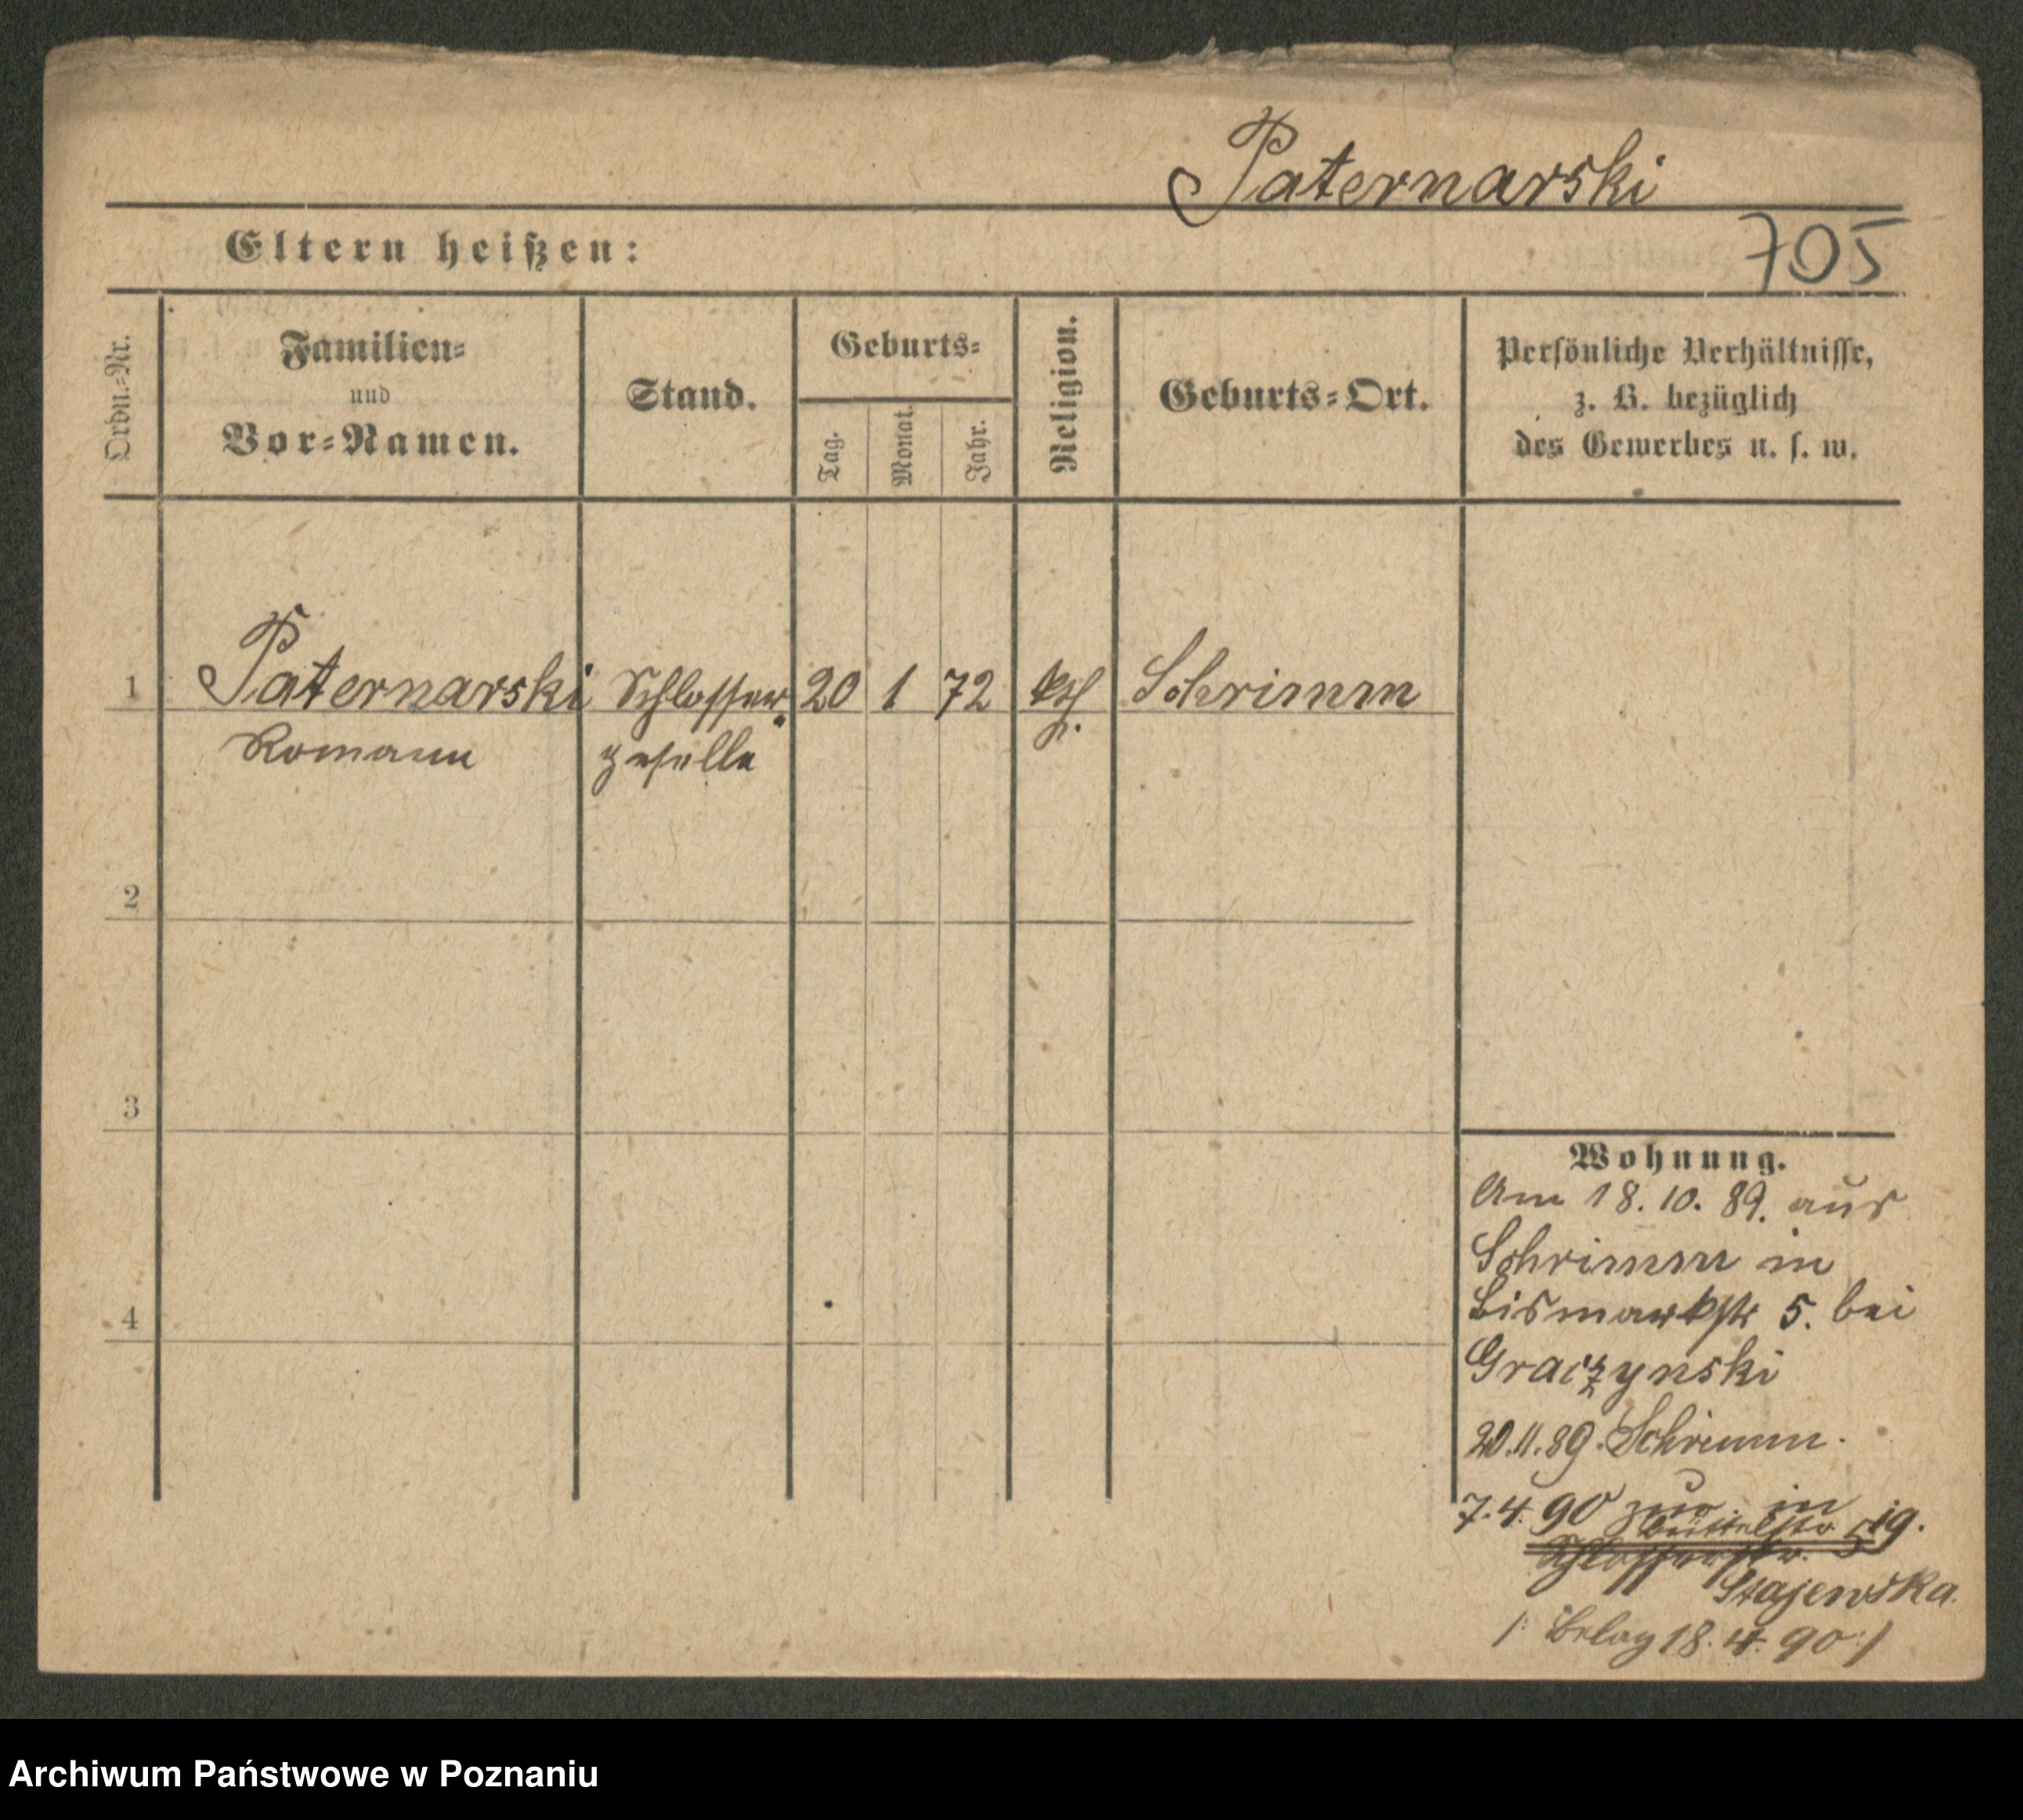 Paternarski
705
Eltern heißen:
Ordn.=Nr.
Familien=
und
Vor=Namen.
Stand.
Geburts=
Tag.
Monat.
Jahr.
Religion.
Geburts=Ort.
Persönliche Verhältnisse,
z. B. bezüglich
des Gewerbes u. s. w.
1 Paternarski Schlosser 20 1 72 kth. Schrimm
Romann geselle
2
3
4
Wohnung.
Am 18. 10. 89. aus
Schrimm in
Bismarkstr 5. bei
Graczynski
20.11.89. Schrimm.
7.4.90 zur. in
Büttelstr 19.
Schlosserstr. 5
Stajewska
/: Belag 18. 4. 90 :/
Archiwum Państwowe w Poznaniu